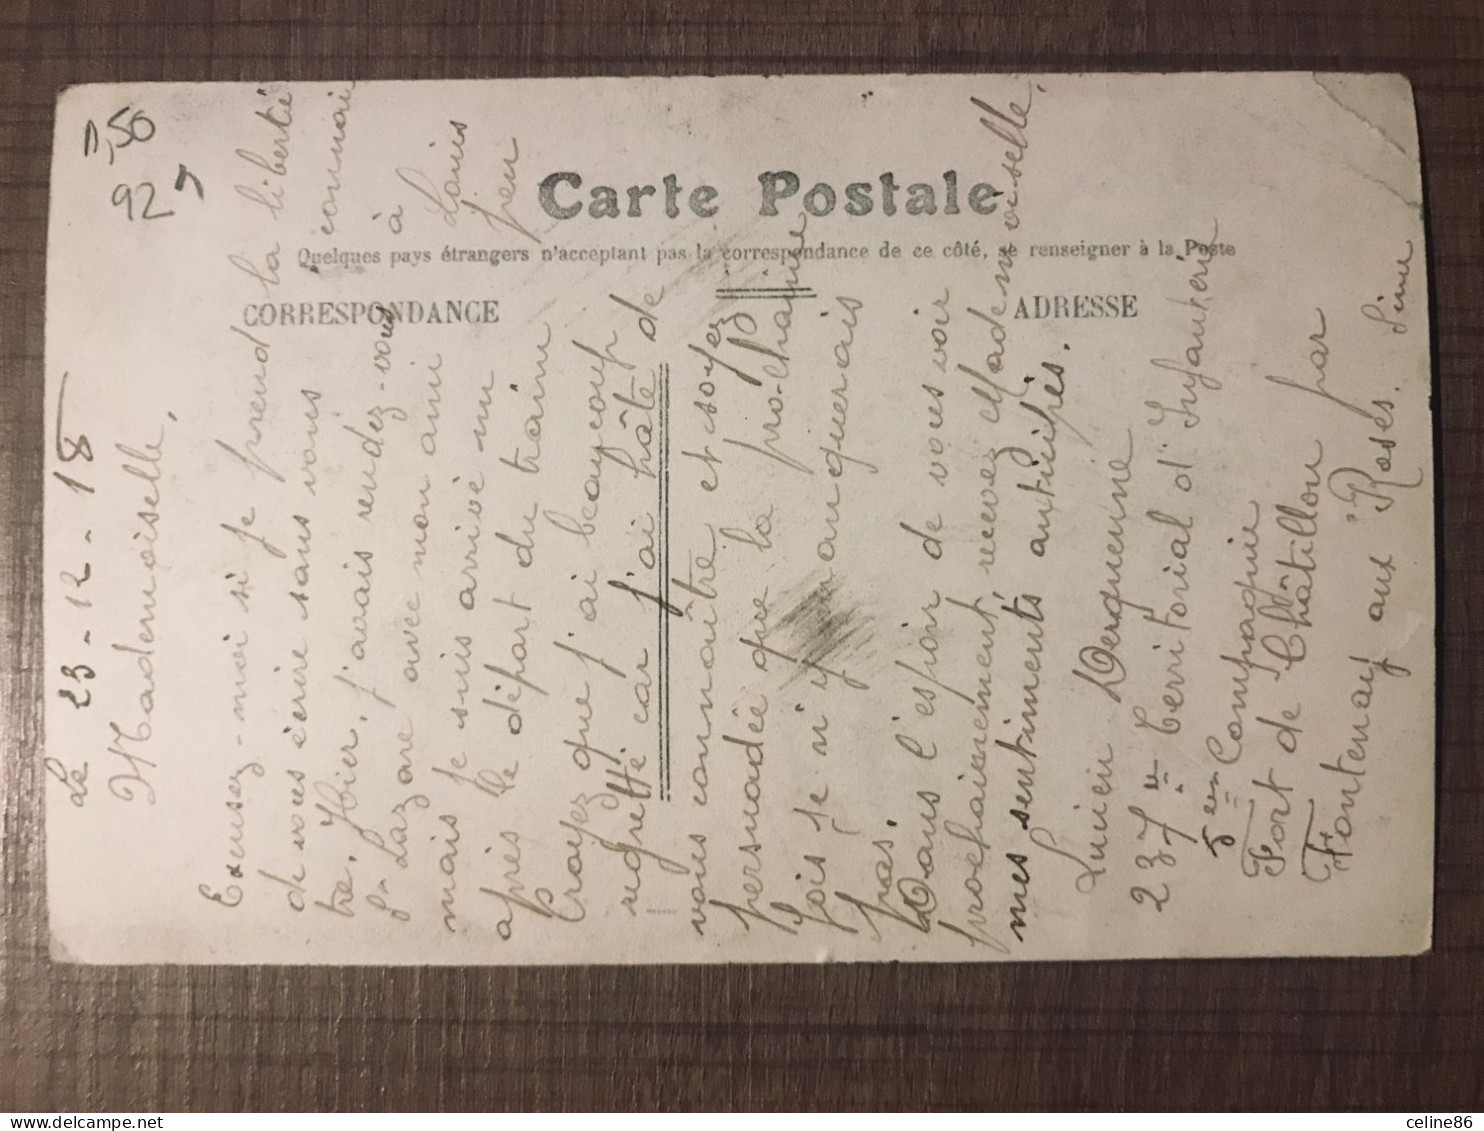 1,50
92
Carte Postale
Quelques pays étrangers n'acceptant pas la correspondance de ce côté, se renseigner à la Poste
CORRESPONDANCE
ADRESSE
Le 23-12-18
Mademoiselle,
Excusez-moi si je prend la liberté
de vous écrire sans vous connaî
tre. Hier, j'avais rendez-vous à
St Lazare avec mon ami Louis
mais je suis arrivé un peu
après le départ du train
Croyez que j'ai beaucoup
regretté car j'ai hâte de
vous connaître et soyez
persuadée que la prochaine
fois je n'y manquerais
pas.
Dans l'espoir de vous voir
prochainement, recevez Mademoiselle,
mes sentiments anticipés.
Lucien Derquenne
237e Territorial d'Infanterie
5em Compagnie
Fort de Châtillon
Fontenay aux Roses. par
Seine
celine86